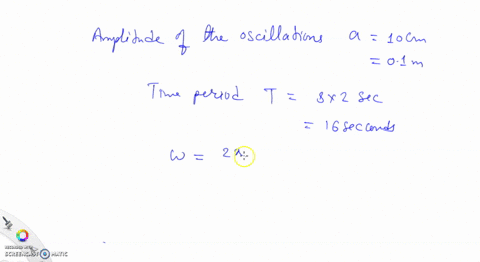 Amplitude of the oscillations a = 10 cm
= 0.1 m
Time period T = 8 × 2 sec
= 16 seconds
ω = 2π
RECORDED WITH
SCREENCAST MATIC